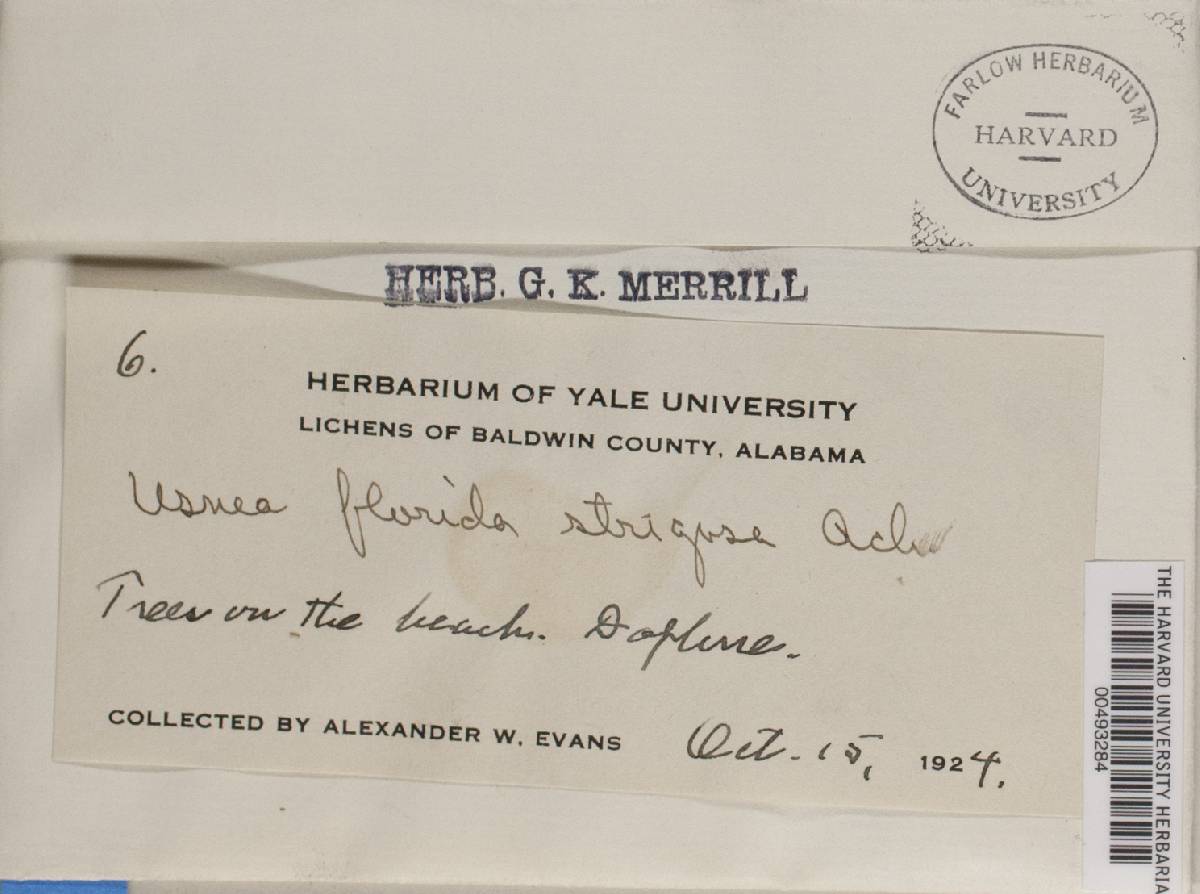 FARLOW HERBARIUM
HARVARD
UNIVERSITY
HERB. G. K. MERRILL
6.
HERBARIUM OF YALE UNIVERSITY
LICHENS OF BALDWIN COUNTY, ALABAMA
Usnea florida strigosa Ach
Trees on the beach. Daphne.
COLLECTED BY ALEXANDER W. EVANS Oct. 15, 1924.
THE HARVARD UNIVERSITY HERBARIA
00493284